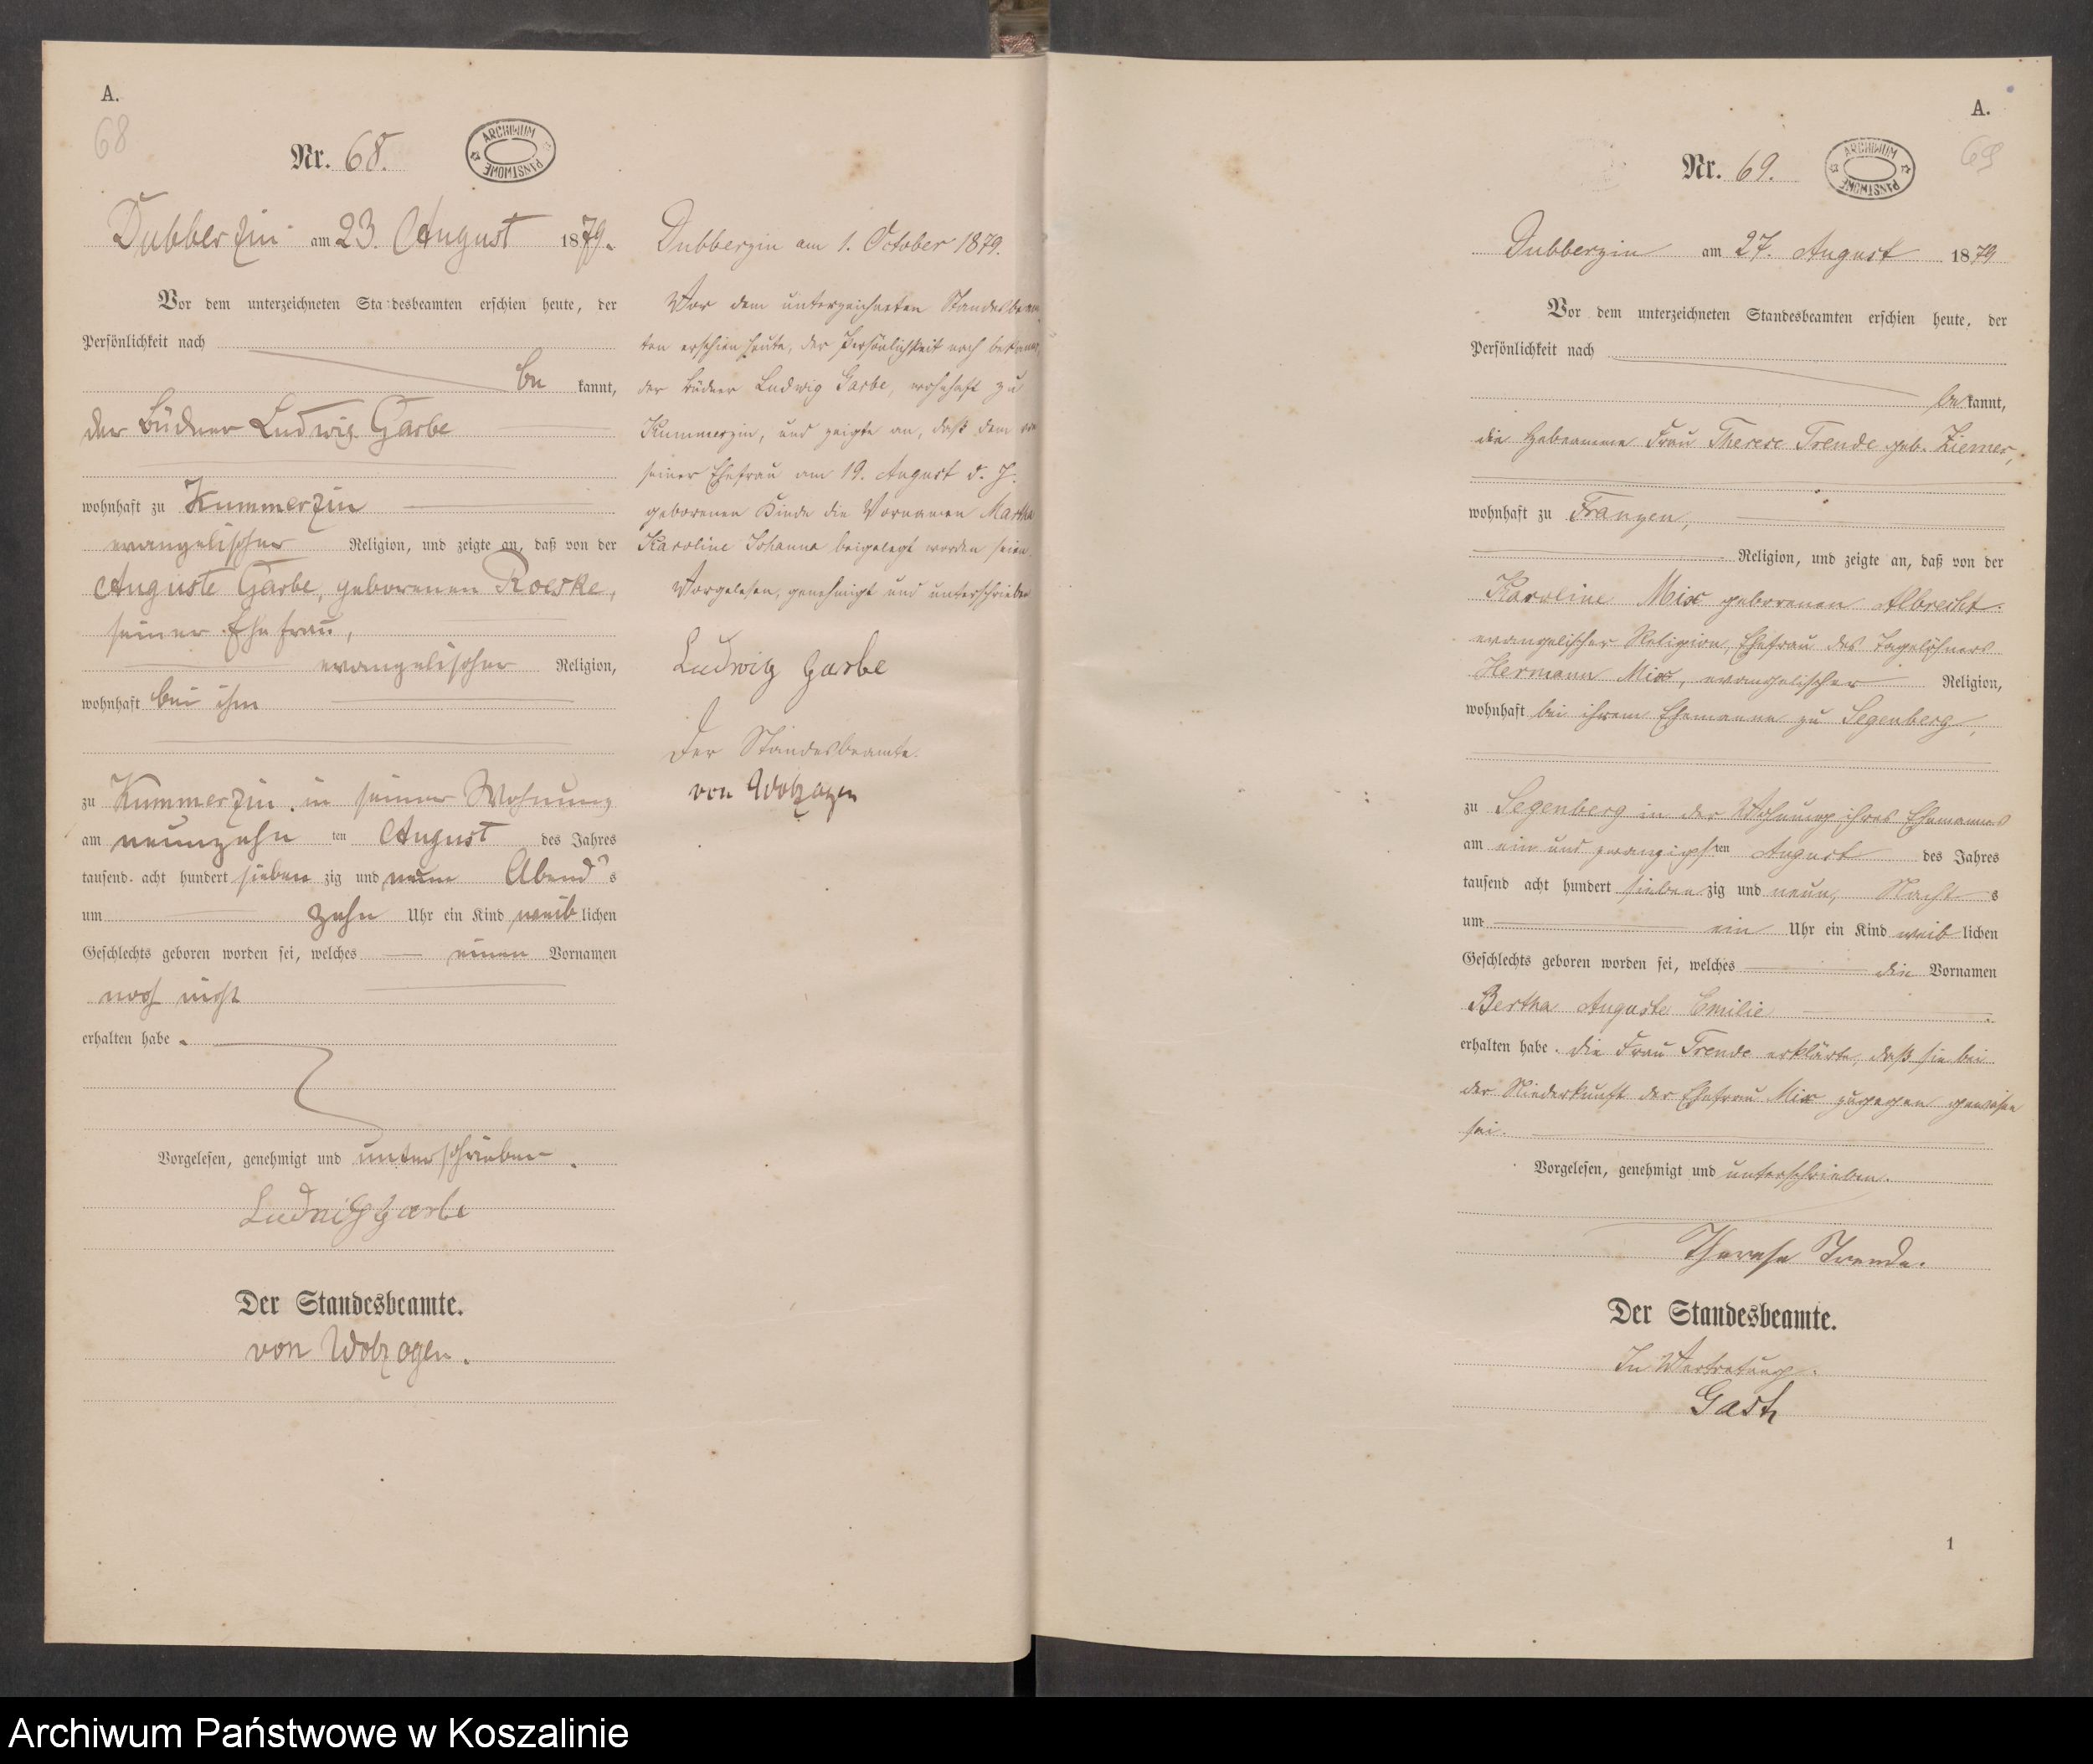 A.
68
Nr. 68.
ARCHIWUM PAŃSTWOWE
Dubberzin am 23. August 1879.
Vor dem unterzeichneten Standesbeamten erschien heute, der
Persönlichkeit nach
be kannt,
der Büdner Ludwig Garbe
wohnhaft zu Kummerzin
evangelischer Religion, und zeigte an, daß von der
Auguste Garbe, geborenen Roeske,
seiner Ehefrau,
evangelischer Religion,
wohnhaft bei ihm
zu Kummerzin in seiner Wohnung
am neunzehn ten August des Jahres
tausend acht hundert sieben zig und neun Abend s
um zehn Uhr ein Kind weib lichen
Geschlechts geboren worden sei, welches einen Vornamen
noch nicht
erhalten habe.
Vorgelesen, genehmigt und unterschrieben.
Ludwig Garbe
Der Standesbeamte.
von Wolzogen.
Dubberzin am 1. October 1879.
Vor dem unterzeichneten Standesbeam
ten erschien heute, der Persönlichkeit nach bekannt,
der Büdner Ludwig Garbe, wohnhaft zu
Kummerzin, und zeigte an, daß dem von
seiner Ehefrau am 19. August d. J.
geborenen Kinde die Vornamen Martha
Karoline Johanna beigelegt worden seien.
Vorgelesen, genehmigt und unterschrieben
Ludwig Garbe
Der Standesbeamte.
von Wolzogen
A.
69
Nr. 69.
ARCHIWUM PAŃSTWOWE
Dubberzin am 27. August 1879
Vor dem unterzeichneten Standesbeamten erschien heute, der
Persönlichkeit nach
be kannt,
die Hebeamme Frau Therese Trende geb. Ziemer,
wohnhaft zu Franzen,
Religion, und zeigte an, daß von der
Karoline Mix geborenen Albrecht
evangelischer Religion, Ehefrau des Tagelöhners
Hermann Mix, evangelischer Religion,
wohnhaft bei ihrem Ehemanne zu Segenberg,
zu Segenberg in der Wohnung ihres Ehemannes
am ein und zwanzigsten August des Jahres
tausend acht hundert sieben zig und neun, Nacht s
um ein Uhr ein Kind weib lichen
Geschlechts geboren worden sei, welches die Vornamen
Bertha Auguste Emilie
erhalten habe. Die Frau Trende erklärte, daß sie bei
der Niederkunft der Ehefrau Mix zugegen gewesen
sei.
Vorgelesen, genehmigt und unterschrieben.
Therese Trende.
Der Standesbeamte.
In Vertretung.
Gast
1
Archiwum Państwowe w Koszalinie